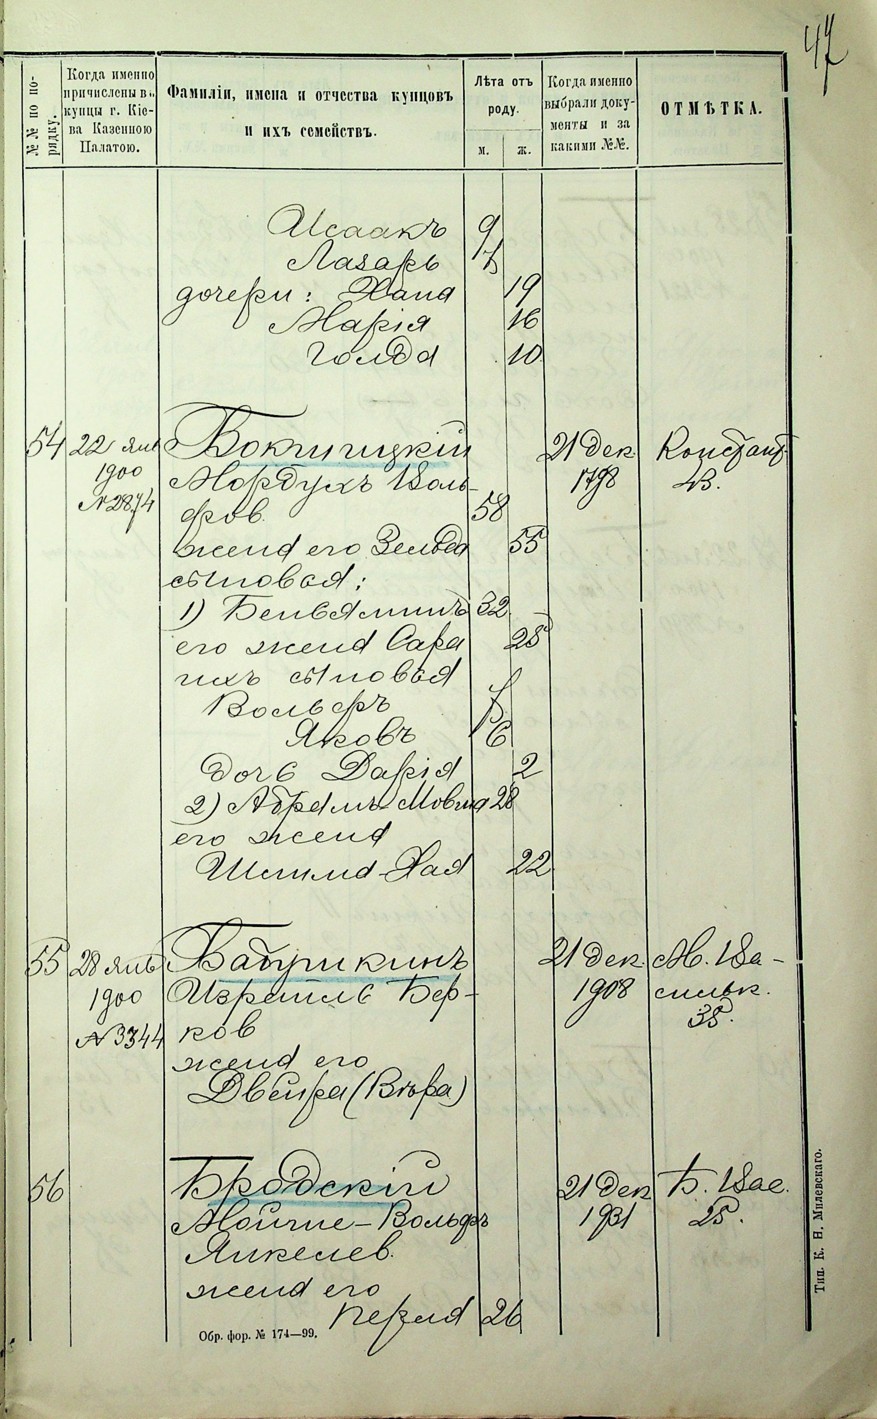 47
№№ по по-
рядку.
Когда именно
причислены въ
купцы г. Кіе-
ва Казенною
Палатою.
Фамиліи, имена и отчества купцовъ
и ихъ семействъ.
Лѣта отъ
роду.
м. ж.
Когда именно
выбрали доку-
менты и за
какими №№.
ОТМѢТКА.
Исаакъ 9
Лазарь 7
дочери: Хана 19
Марія 16
Голда 10
54 22 янв 21 дек. Констант.
1900 Мордухъ Воль- 1798 43.
№ 2874 фов. 58
жена его Зельда 55
сыновья:
1) Беньяминъ 32
его жена Сара 28
ихъ сыновья
Вольфъ 8
Яковъ 6
дочь Дарія 2
2) Абрамъ-Мовша 28
его жена
Хая 22
55 28 янв Бабушкинъ 21 дек. М. Ва-
1900 Израиль Бер- 1908 сильк.
№ 3344 ков 35.
жена его
Двейра (Вѣра)
56 Бродскій 21 дек. Б. Вас.
Мойше-Вольфъ 1931 25.
Янкелев.
жена его
Перля 26
Обр. фор. № 174—99.
Тип. К. Н. Милевскаго.